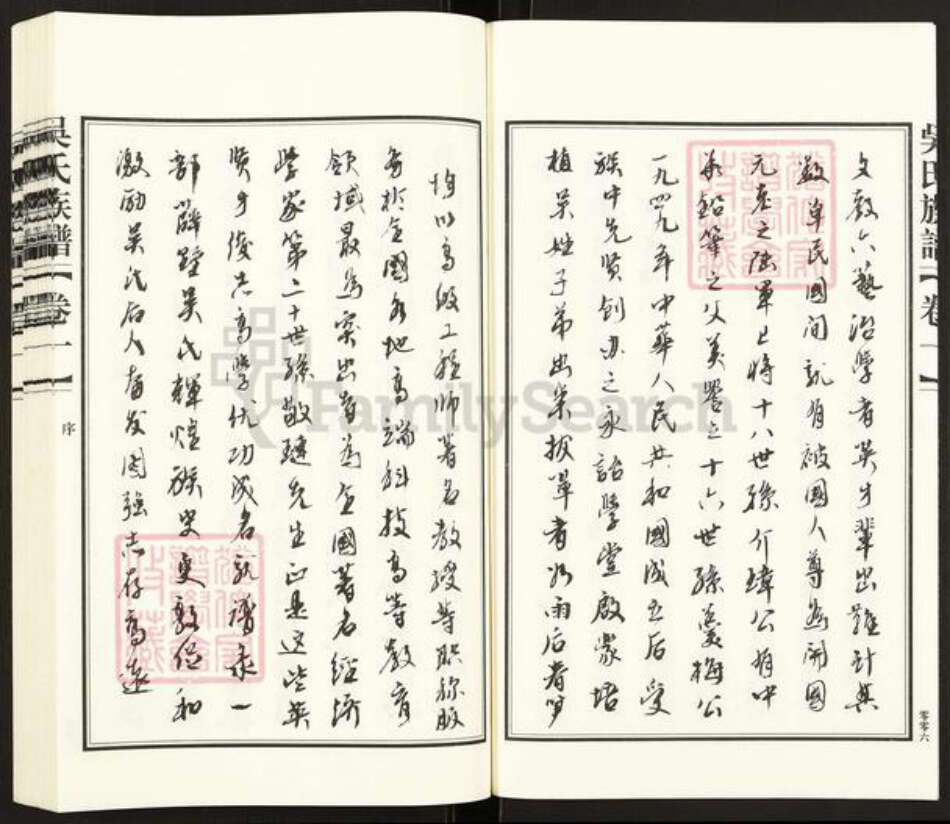 吳氏族譜【卷一】
文教六藝治學者英才輩出難計其
數單民國間就有被國人尊為開國
元老之陸軍上將十八世孫介璋公有中
華鉛筆之父美譽之十六世孫羹梅公
一九四九年中華人民共和國成立后受
族中先賢創办之永詒學堂啟蒙培
植吴姓子弟出类拔萃者如雨后春笋
零零六
均以高级工程師著名教授等职称服
务於全國各地高端科技高等教育
领域最為突出者為全國著名經济
學家第二十世孫敬璉先生正是这些英
贤才俊共高學优功成名就譜永一
部麟墅吴氏輝煌族史更敦促和
激励吴氏后人奋发图强志存高遠
吳氏族譜【卷一】
序
FamilySearch